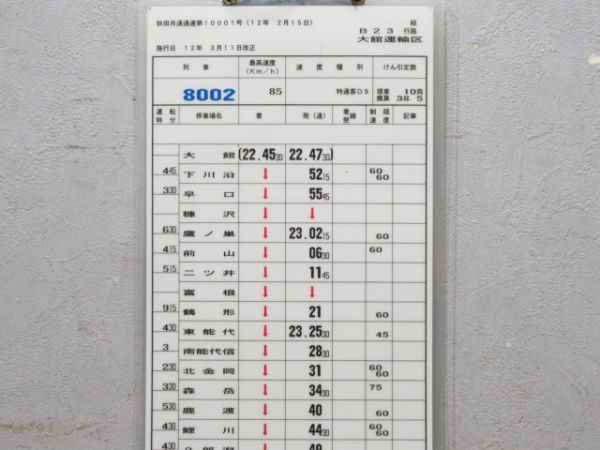 秋田共通通運第10001号(12年 2月15日) 組
B23 行路
施行日 12年 3月11日改正 大館運輸区
列車 最高速度(Km/h) 速度種別 けん引定数
8002 85 特通客D9 現車 10両 換算 38.5
運転時分 停車場名 着 発(通) 着発線 制限速度 記事
大館 (22.4530 22.4730)
445 下川沿 ↓ 5215 60 60
330 早口 ↓ 5545
糠沢 ↓ ↓
630 鷹ノ巣 ↓ 23.0215 60
415 前山 ↓ 0630 60
515 二ツ井 ↓ 1145
富根 ↓ ↓
915 鶴形 ↓ 21 60
430 東能代 ↓ 23.2530 45
3 南能代信 ↓ 2830
230 北金岡 ↓ 31 60 60
330 森岳 ↓ 3430 75
530 鹿渡 ↓ 40 60
430 鯉川 ↓ 4430 60 60
430